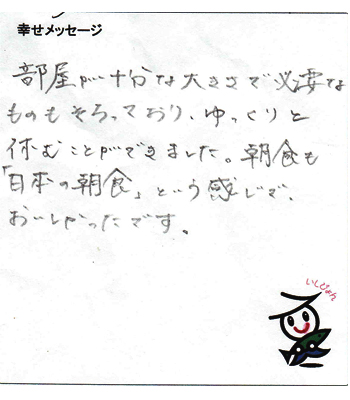 幸せメッセージ
部屋が十分な大きさで必要な
ものもそろっており、ゆっくりと
休むことができました。朝食も
「日本の朝食」という感じで、
おいしかったです。